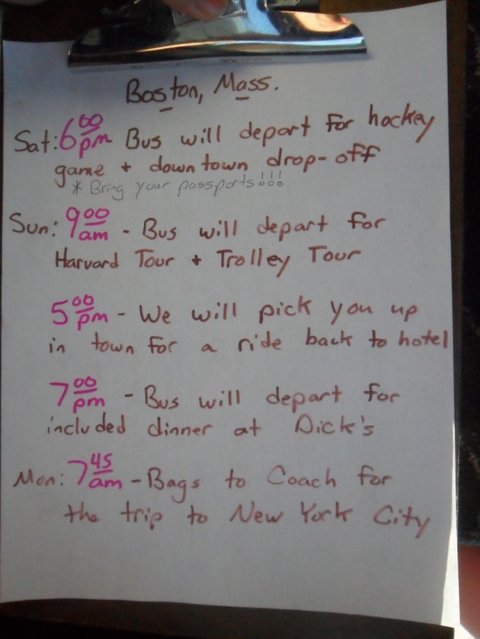 Boston, Mass.
Sat: 6 00 pm Bus will depart for hockey
game + downtown drop-off
* Bring your passports!!!
Sun: 9 00 am - Bus will depart for
Harvard Tour + Trolley Tour
5 00 pm - We will pick you up
in town for a ride back to hotel
7 00 pm - Bus will depart for
included dinner at Dick's
Mon: 7 45 am - Bags to Coach for
the trip to New York City